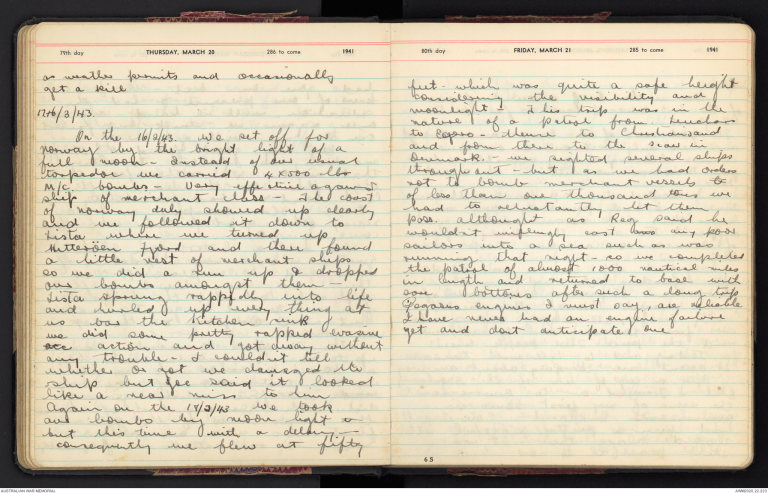 79th day THURSDAY, MARCH 20 286 to come 1941
as weather permits and occasionally
get a kill
17th/3/43.
On the 16/3/43 we set off for
Norway by the bright light of a
full moon - Instead of our usual
torpedoe we carried 4 x 500 lbs
M/C bombs - Very effective against
ship of merchant class - The coast
of Norway duly showed up clearly
and we followed it down to
Lista where we turned up
fjord and there found
a little nest of merchant ships
so we did a run up & dropped
our bombs amongst them -
Lista sprung rappidly into life
and hurled up every thing at
us bar the kitchen sink
we did some pretty rapped evasive
action and got away without
any trouble - I couldnt tell
whether or not we damaged the
ship but Joe said it looked
like a near miss to him
Again on the 18/3/43 we took
our bombs by moon light
but this time with a delay -
consequently we flew at fifty
80th day FRIDAY, MARCH 21 285 to come 1941
feet - which was quite a safe height
considering the visibility and
moonlight - This trip was in the
nature of a patrol from Leuchars
to - thence to Christiansand
and from there to the in
Denmark. - we sighted several ships
throughout - but as we had orders
not to bomb merchant vessels
of less than one thousand tons we
had to reluctantly let them
pass, althought as Reg said he
wouldnt willingly cast any poor
sailors into a sea such as was
running that night - so we completed
the patrol of almost 1000 nautical miles
in length and returned to base with
sore bottoms after such a long trip
Pagasus engines I must say, are reliable
I have never had an engine failure
yet and dont anticipate one
65
AUSTRALIAN WAR MEMORIAL